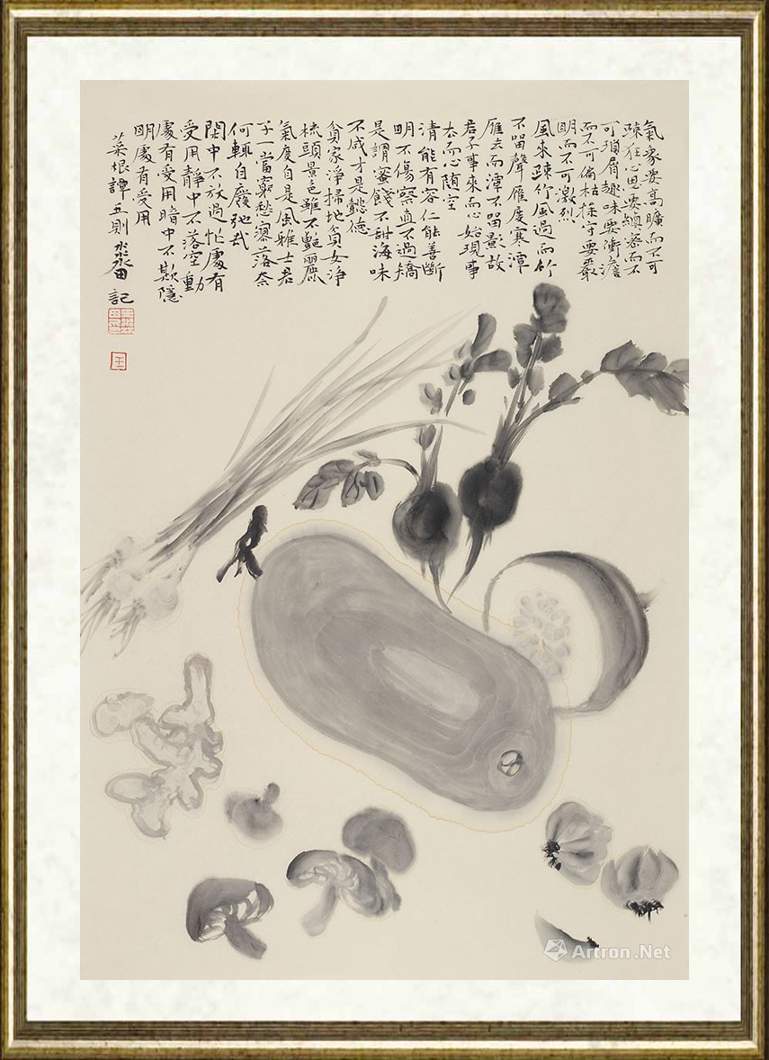 氣象要高曠而不可
疎狂心思要縝密而不
可瑣屑趣味要沖澹
而不可偏枯操守要嚴
明而不可激烈
風來疎竹風過而竹
不留聲雁度寒潭
雁去而潭不留影故
君子事來而心始現事
去而心随空
清能有容仁能善斷
明不傷察直不過矯
是謂蜜餞不甜海味
不咸才是懿德
貧家淨掃地貧女淨
梳頭景色雖不艷麗
氣度自是風雅士君
子一當窮愁寥落奈
何輒自廢弛哉
閑中不放過忙處有
受用靜中不落空動
處有受用暗中不欺隱
明處有受用
菜根譚五則 淼田 記
王
Artron.Net